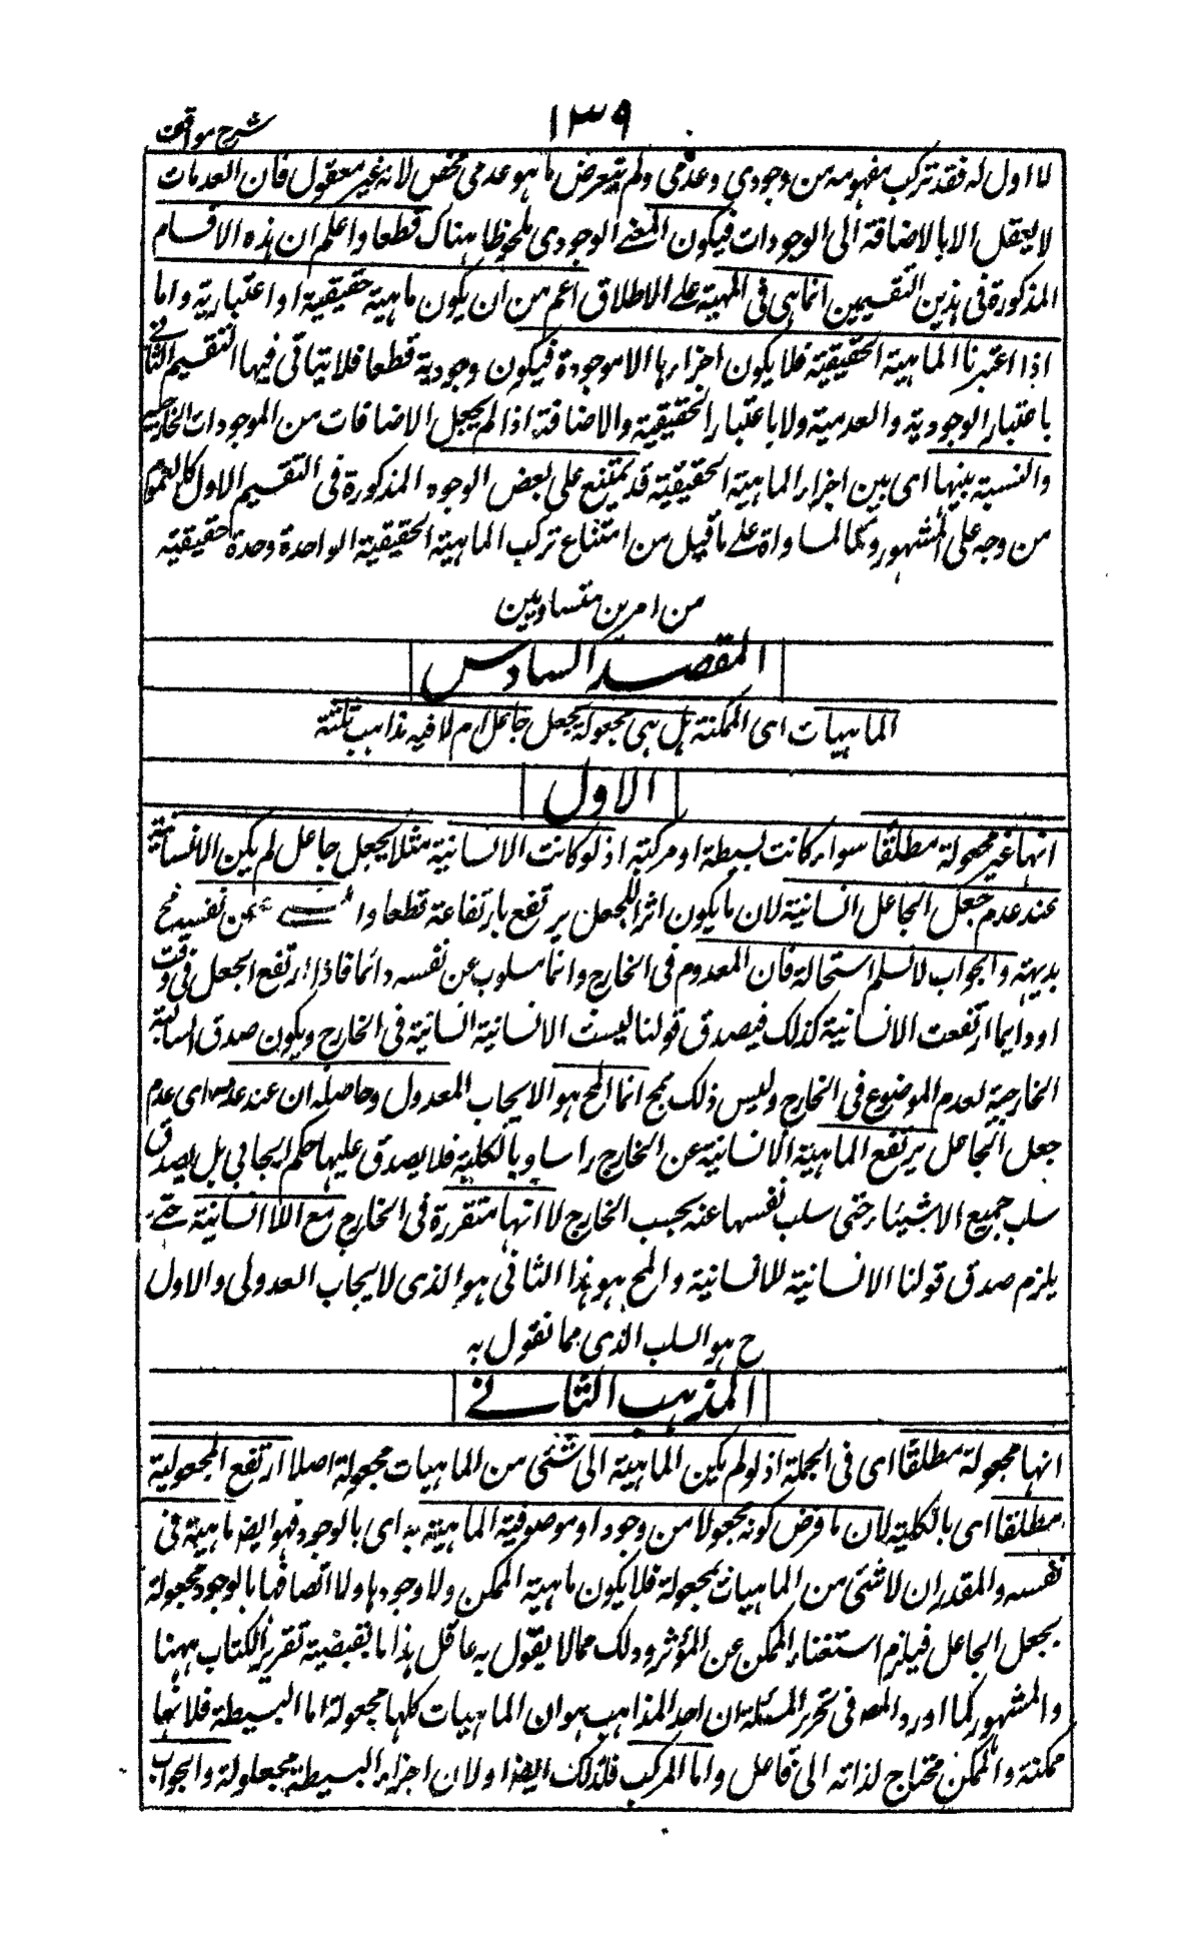 شرح مواقف
١٣٩
لا اول له فقد تركب مفهومه من وجودي وعدمي ولم يتعرض ما هو عدمي محض لانه غير معقول فان العدمات
لا يعقل الا بالاضافة الى الوجودات فيكون المعنے الوجودي ملحوظا هناك قطعا واعلم ان هذه الاقسام
المذكورة في هذين التقسيمين انما هي في المهية علے الاطلاق اعم من ان يكون ماهية حقيقية او اعتبارية واما
اذا اعتبرنا الماهية الحقيقية فلا يكون اجزاءها الا موجودة فيكون وجودية قطعا فلا يتاتى فيها التقسيم الثانے
باعتبار الوجودية والعدمية ولا باعتبار الحقيقية والاضافة اذا لم يجعل الاضافات من الموجودات الخارجية
والنسبة بينها اى بين اجزاء الماهية الحقيقية قد يمتنع على بعض الوجوه المذكورة فى التقسيم الاول كالعموم
من وجه على المشهور وكالمساواة علے ما قيل من امتناع تركب الماهية الحقيقية الواحدة وحدة حقيقية
من امرين متساويين
المقصد السادس
الماهيات اى الممكنة هل هى مجعولة بجعل جاعل ام لا فيه مذاهب ثلثة
الاول
انها غير مجعولة مطلقا سواء كانت بسيطة او مركبة اذ لو كانت الانسانية مثلا بجعل جاعل لم يكن الانسانية
عند عدم جعل الجاعل انسانية لان ما يكون اثرا للجعل يرتفع بارتفاعه قطعا و عن نفسه مح
بديهة والجواب لا نسلم استحالة فان المعدوم فى الخارج دائما مسلوب عن نفسه دائما فاذا ارتفع الجعل فى وقت
او دايما ارتفعت الانسانية كذلك فيصدق قولنا ليست الانسانية انسانية فى الخارج ويكون صدق السالبة
الخارجية لعدم الموضوع فى الخارج وليس ذلك بمح انما المح هو الايجاب المعدول وحاصله ان عند عدمه اى عدم
جعل الجاعل يرتفع الماهية الانسانية عن الخارج راسا وبالكلية فلا يصدق عليها حكم ايجابي بل يصدق
سلب جميع الاشياء حتى سلب نفسها عنه بحسب الخارج لا انها متقررة فى الخارج مع اللاانسانية حتے
يلزم صدق قولنا الانسانية للانسانية والمح هو هذا الثانى هو الذى لايجاب العدولى والاول
ح هو السلب الذى مما نقول به
المذهب الثانے
انها مجعولة مطلقا اى فى الجملة اذ لو لم يكن الماهية الى شئى من الماهيات مجعولة اصلا ارتفع المجعولية
مطلقا اى بالكلية لان ما فرض كونه مجعولا من وجود او موصوفية الماهية به اى بالوجود فهو ايض ماهية فى
نفسه والمقدر ان لا شئى من الماهيات بمجعولة فلا يكون ماهية الممكن ولا وجودها ولا اتصافها بالوجود مجعولة
بجعل الجاعل فيلزم استغناء الممكن عن المؤثر وذلك مما لا يقول به عاقل هذا ما يقتضيه تقرير الكتاب ههنا
والمشهور كما اورد المصـ فى تحرير المسئلة ان احد المذاهب هو ان الماهيات كلها مجعولة اما البسيطة فلانها
ممكنة والممكن محتاج لذاته الى فاعل واما المركب فلذلك ايضا ولان اجزاء البسيطة مجعولة والجواب